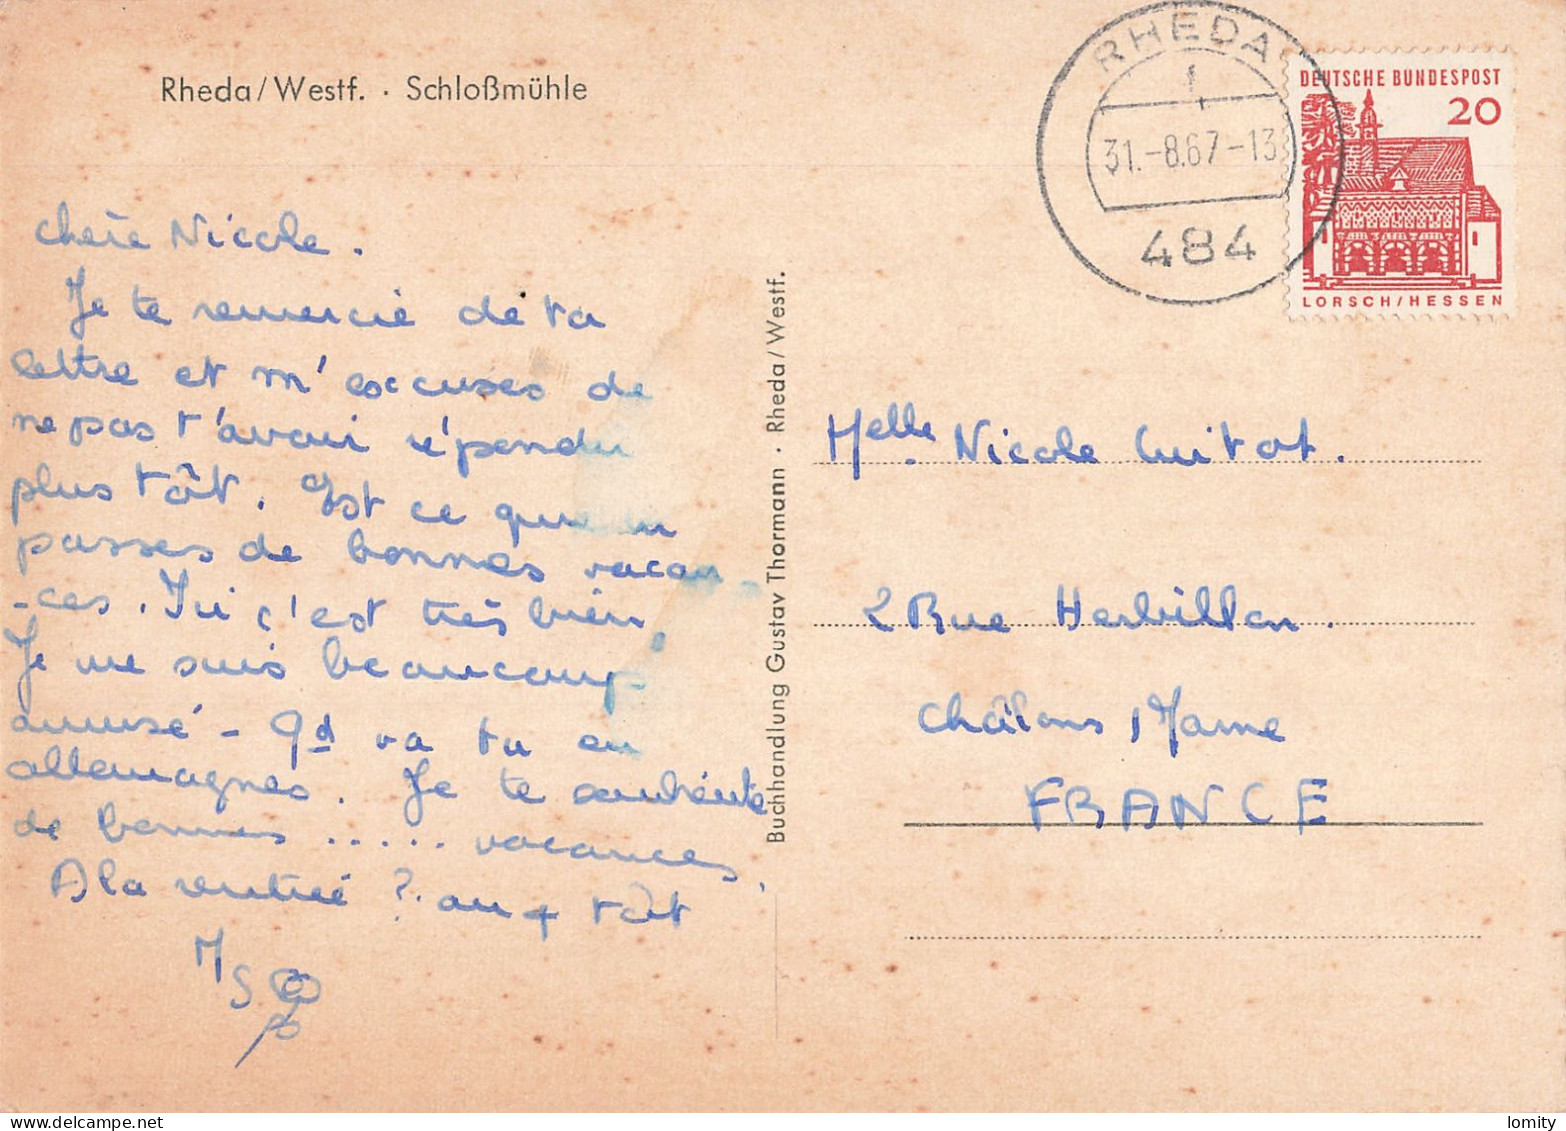 Rheda/Westf. · Schloßmühle
RHEDA
1
31.-8.67-13
484
DEUTSCHE BUNDESPOST
20
LORSCH/HESSEN
chère Nicole.
Je te remercie de ta
lettre et m'excuses de
ne pas t'avoir répendu
plus tôt. Est ce que tu
passes de bonnes vacan
-ces. Ici c'est très bien,
Je me suis beaucoup
amusé - qd va tu en
allemagnes. Je te souhaite
de bonnes ..... vacances,
A la rentrée ? au + tôt
MS
Buchhandlung Gustav Thormann · Rheda/Westf.
Melle Nicole Cuitot.
2 Rue Herbillon.
Châlons / Marne
FRANCE
lomity